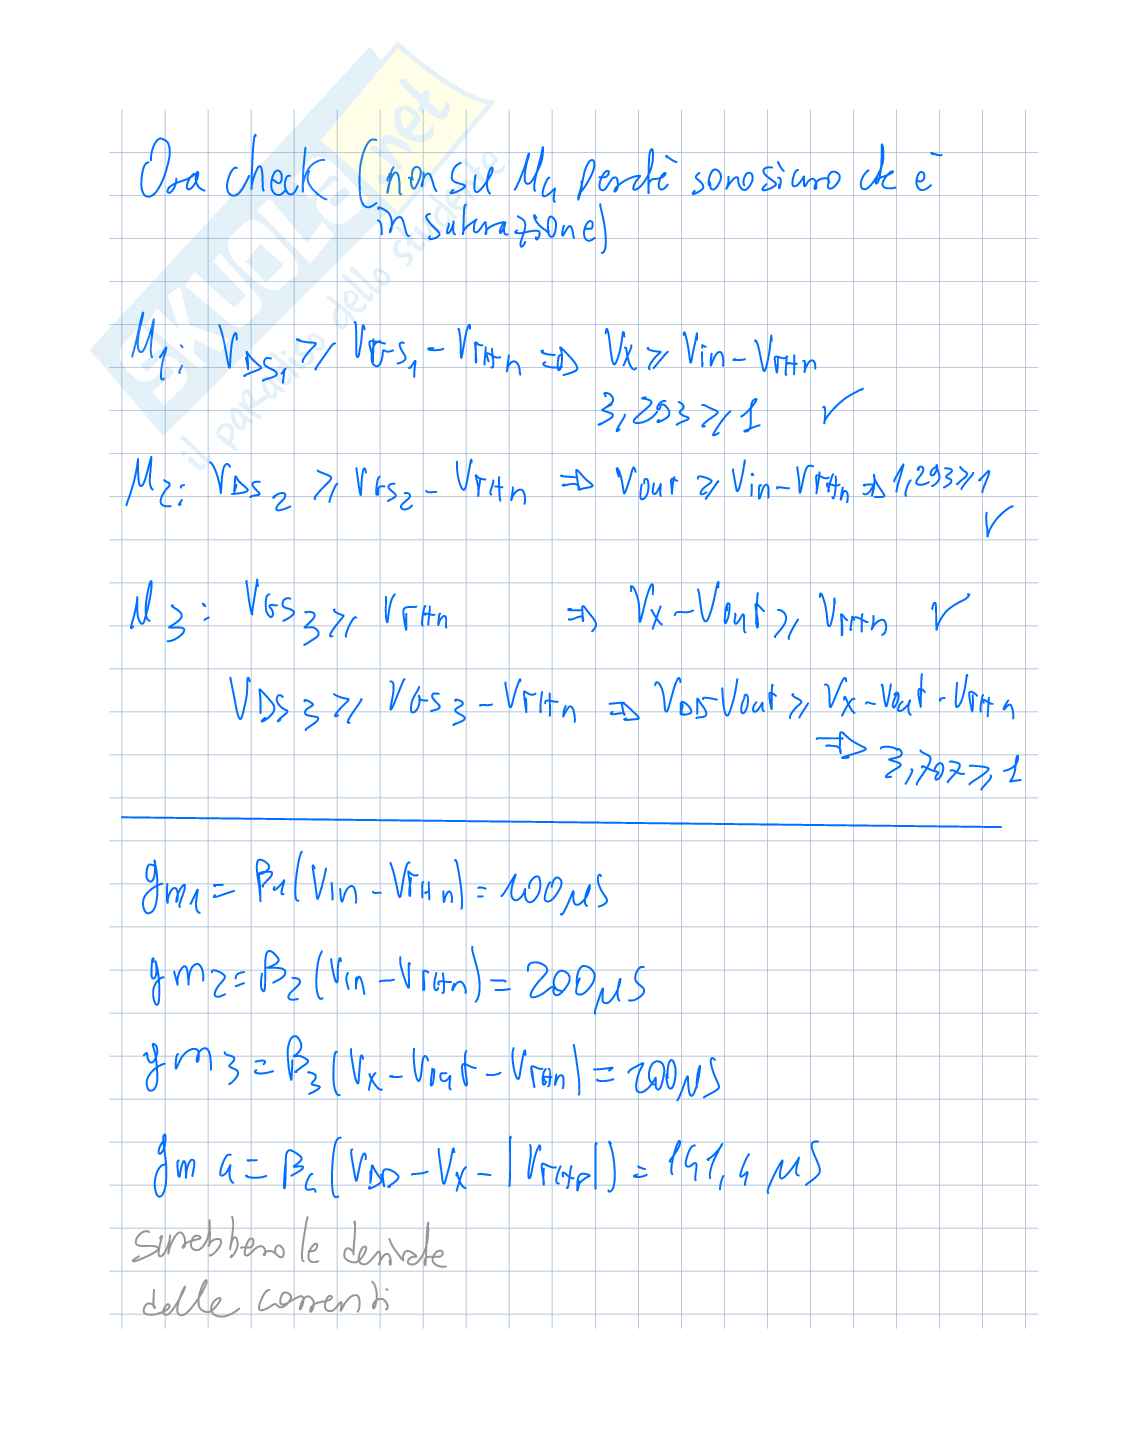 Ora check (non su M4 perchè sono sicuro che è
in saturazione)
SKUOLA.net
il paradiso dello studente
M1: VDS1 ⩾ VGS1 - VTHn ⇒ Vx ⩾ Vin - VTHn
3,293 ⩾ 1 ✓
M2: VDS2 ⩾ VGS2 - VTHn ⇒ Vout ⩾ Vin - VTHn ⇒ 1,293 ⩾ 1
✓
M3: VGS3 ⩾ VTHn ⇒ Vx - Vout ⩾ VTHn ✓
VDS3 ⩾ VGS3 - VTHn ⇒ VDD - Vout ⩾ Vx - Vout - VTHn
⇒ 3,707 ⩾ 1
gm1 = β1(Vin - VTHn) = 100 μS
gm2 = β2(Vin - VTHn) = 200 μS
gm3 = β3(Vx - Vout - VTHn) = 200 μS
gm4 = β4(VDD - Vx - |VTHp|) = 141,4 μS
sarebbero le derivate
delle correnti